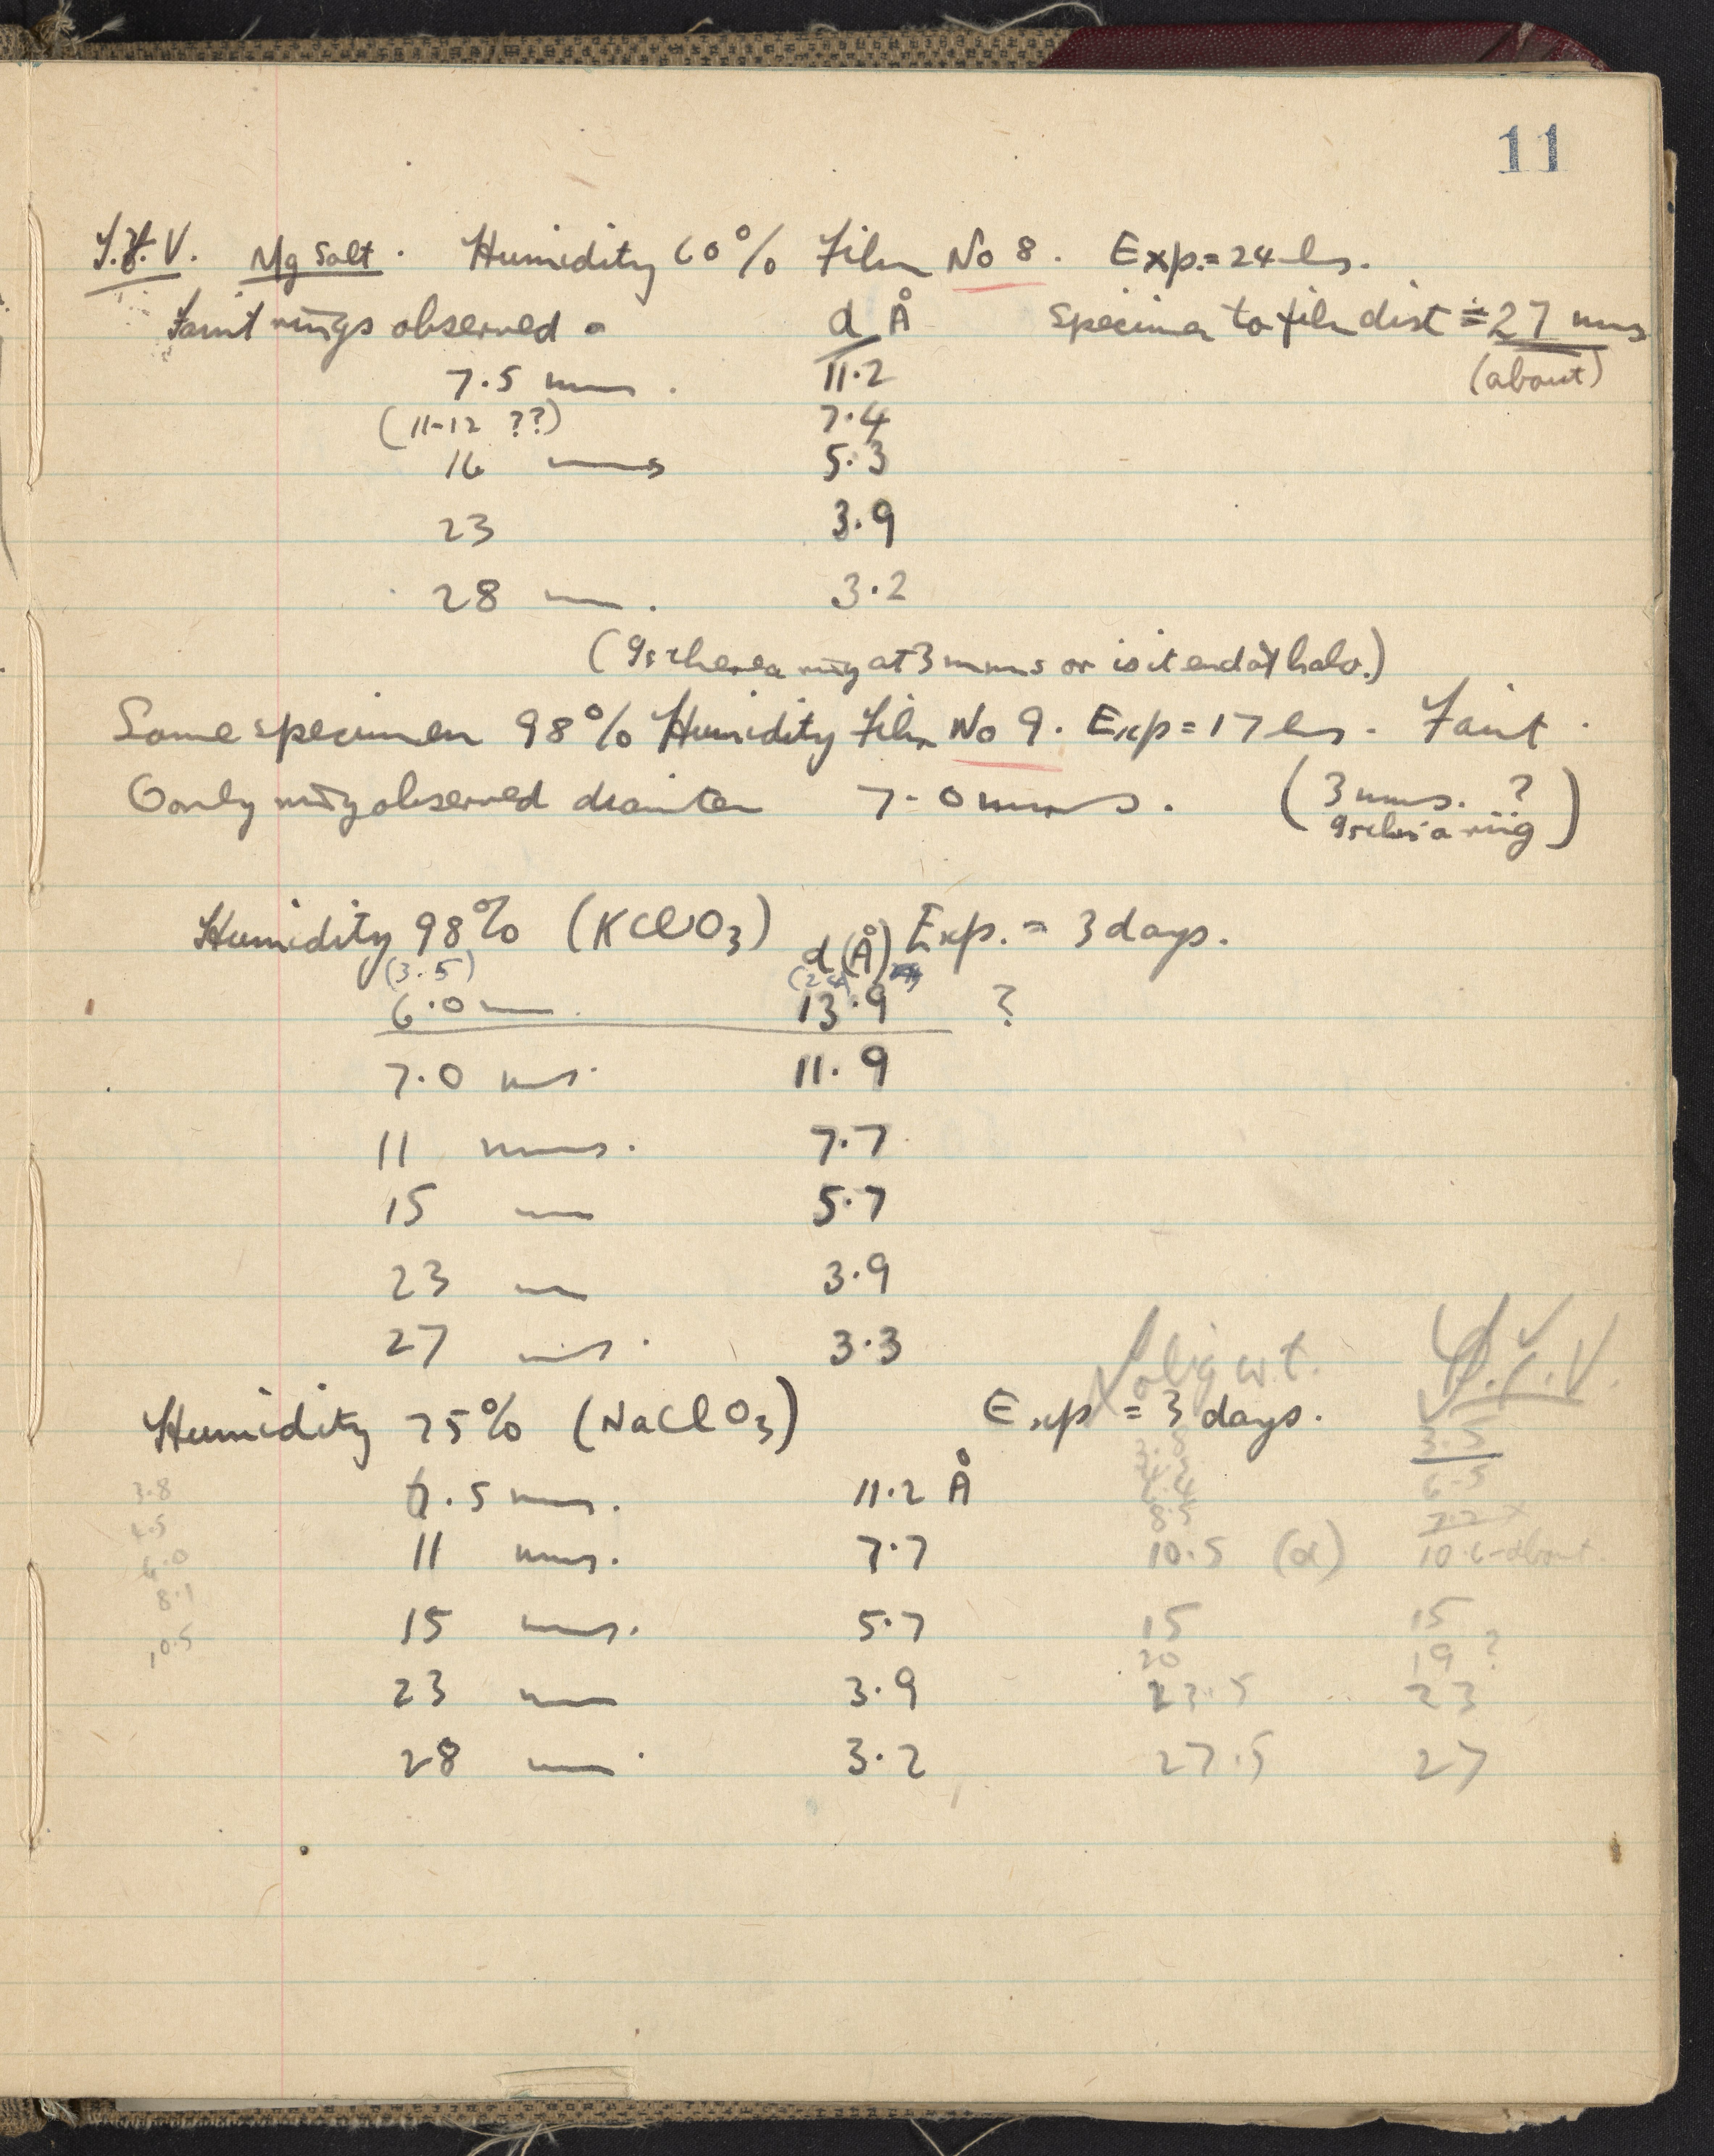 11
T.Y.V. Mg Salt. Humidity 60% Film No 8. Exp. = 24 hs.
Faint rings observed d Å Specimen to film dist ≑ 27 mms
7.5 mms. 11.2 (about)
(11-12 ??) 7.4
16 mms 5.3
23 3.9
28 mm. 3.2
(Is there a ring at 3 mms or is it end of halo.)
Same specimen 98% Humidity Film No 9. Exp = 17 hs. Faint.
Only ring observed diameter 7.0 mms. (3 mms. ?
Is this a ring)
Humidity 98% (KClO3) d (Å) Exp. = 3 days.
(3.5)
6.0 mm. 13.9 ?
7.0 ms. 11.9
11 mms. 7.7
15 mm 5.7
23 mm 3.9
27 ms. 3.3
Humidity 75% (NaClO3) Exp = 3 days.
3.5
3.8 7.5 mms. 11.2 Å 6.5
4.5 8.5 7.2 x
6.0 11 mms. 7.7 10.5 (d) 10.6 about
8.1
10.5 15 mms. 5.7 15 15
20 19 ?
23 mm 3.9 23.5 23
28 mm. 3.2 27.5 27